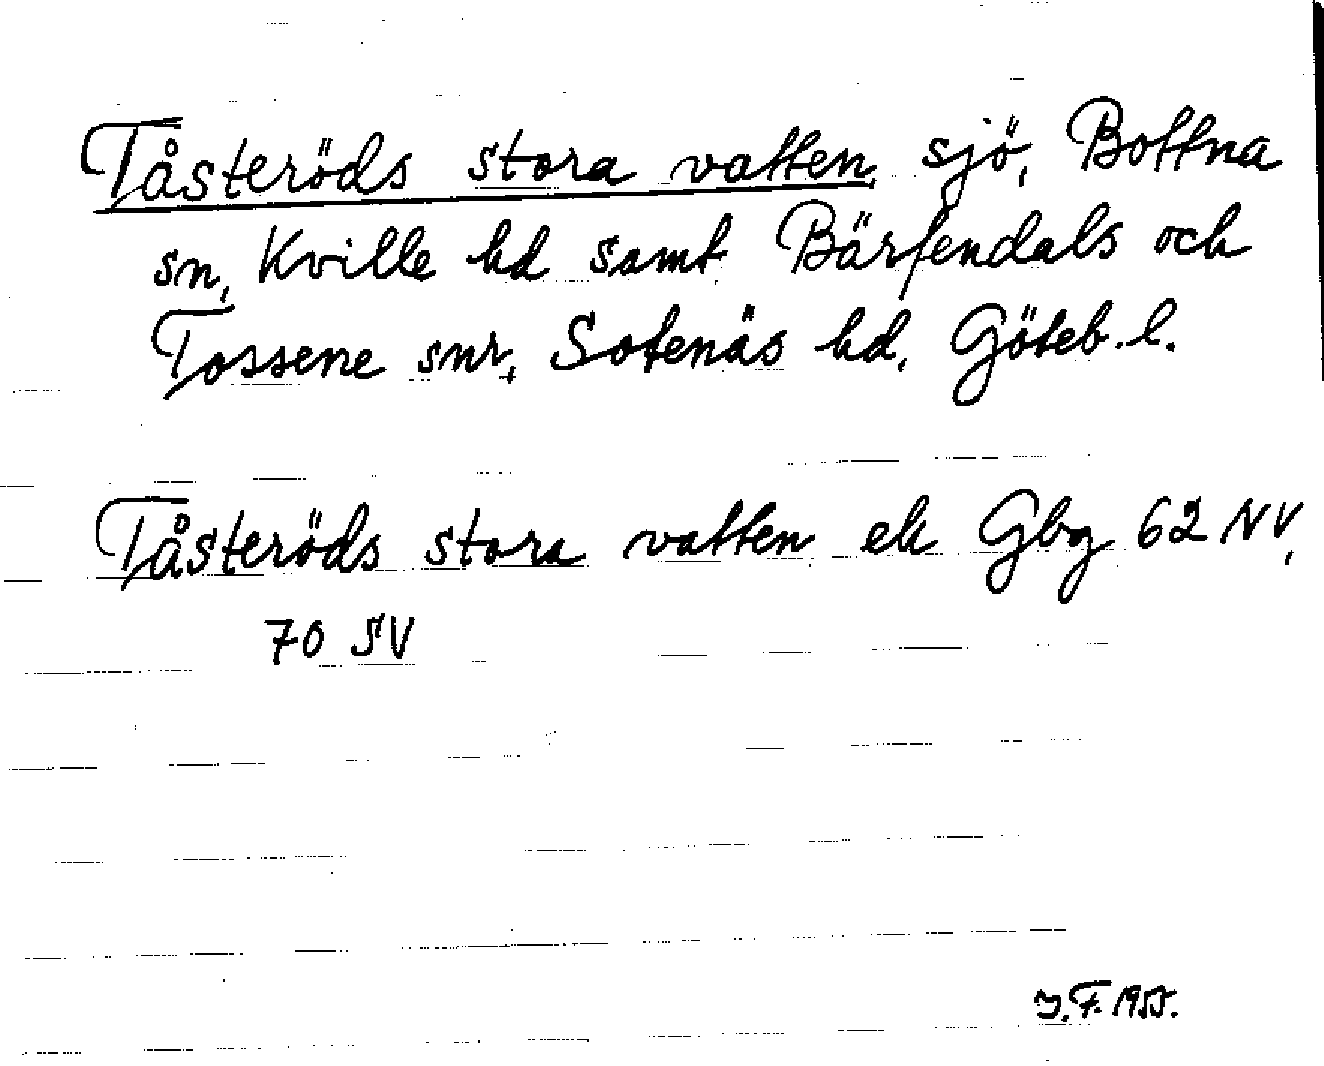 Tåsteröds stora vatten, sjö, Bottna
sn, Kville hd samt Bärfendals och
Tossene snr, Sotenäs hd, Göteb. l.
Tåsteröds stora vatten ek Gbg 62 NV,
70 SV
J.F. 1955.